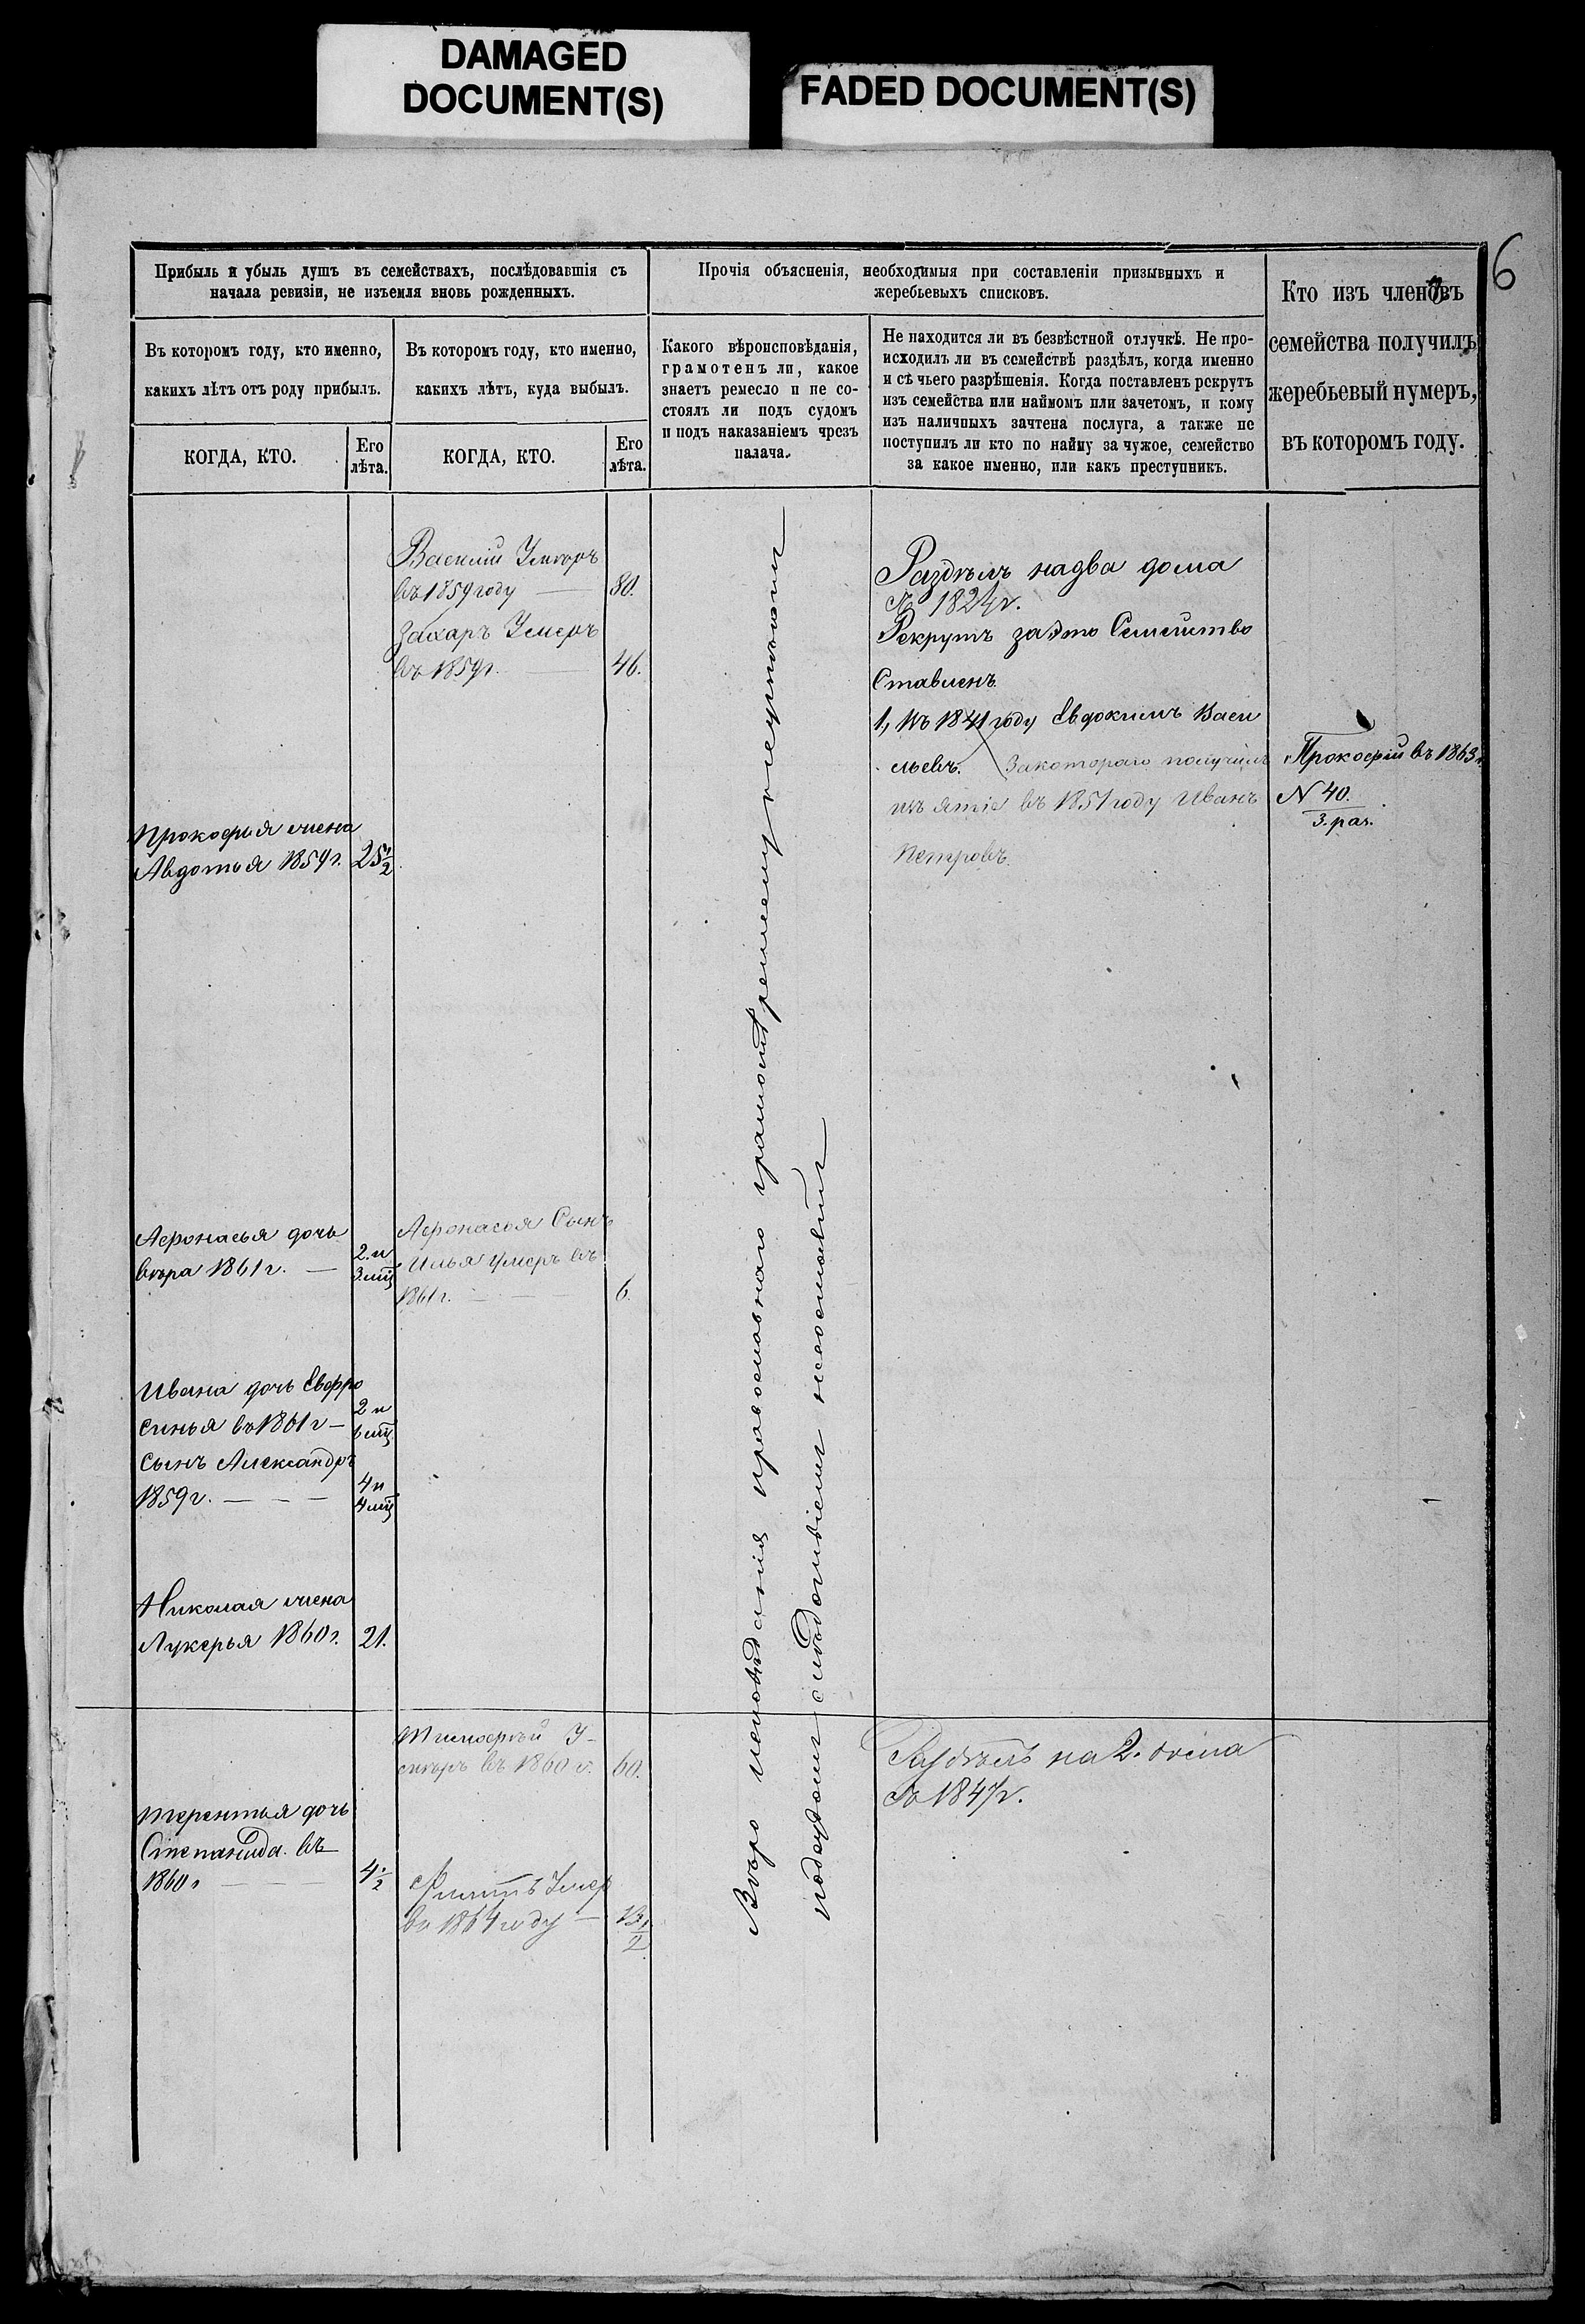 DAMAGED
DOCUMENT(S)
FADED DOCUMENT(S)
6
Прибыль и убыль душъ въ семействахъ, послѣдовавшія съ
начала ревизіи, не изъемля вновь рожденныхъ.
Въ которомъ году, кто именно,
какихъ лѣтъ отъ роду прибылъ.
КОГДА, КТО.
Его
лѣта.
Въ которомъ году, кто именно,
какихъ лѣтъ, куда выбылъ.
КОГДА, КТО.
Его
лѣта.
Прочія объясненія, необходимыя при составленіи призывныхъ и
жеребьевыхъ списковъ.
Какого вѣроисповѣданія,
грамотенъ ли, какое
знаетъ ремесло и не со-
стоялъ ли подъ судомъ
и подъ наказаніемъ чрезъ
палача.
Не находится ли въ безвѣстной отлучкѣ. Не про-
исходилъ ли въ семействѣ раздѣлъ, когда именно
и съ чьего разрѣшенія. Когда поставленъ рекрутъ
изъ семейства или наймомъ или зачетомъ, и кому
изъ наличныхъ зачтена послуга, а также не
поступилъ ли кто по найму за чужое, семейство
за какое именно, или какъ преступникъ.
Кто изъ членовъ
семейства получилъ
жеребьевый нумеръ,
въ которомъ году.
Василій Умѣръ
въ 1859 году — 80.
Захаръ Умеръ
въ 1859г. — 46.
Раздѣлъ на два дома
въ 1824г.
Рекрутъ за это Семейство
Ставленъ
1, въ 1841 году Евдокимъ Васи
льевъ. За котораго получилъ
изъятіе въ 1851 году Иванъ
Петровъ.
Прокофій въ 1863г.
N 40.
3. раз.
Прокофья жена
Авдотья 1859г. 25 1/2
Афонасья дочь
Вѣра 1861г. — 2. и
3. мѣц
Афонасья Сынъ
Илья умеръ въ
1861г. — — 6.
Ивана дочь Евфро
синья въ 1861г — 2 и
6 мѣц.
Сынъ Александръ
1859г. — — — 4 и
4 мѣц
Николая жена
Лукерья 1860г. 21.
Вѣро исповѣданія православнаго грамотѣ ремеслу неучены
подсудомъ и слѣдствіемъ несостояли
Тимофѣй У-
мѣръ въ 1860г. 60.
Раздѣлъ на 2. дома
въ 1847г.
Терентья дочь
Степанида въ
1860г — — — 4 1/2
Филипъ Умер
въ 1864 году — 13 1/2